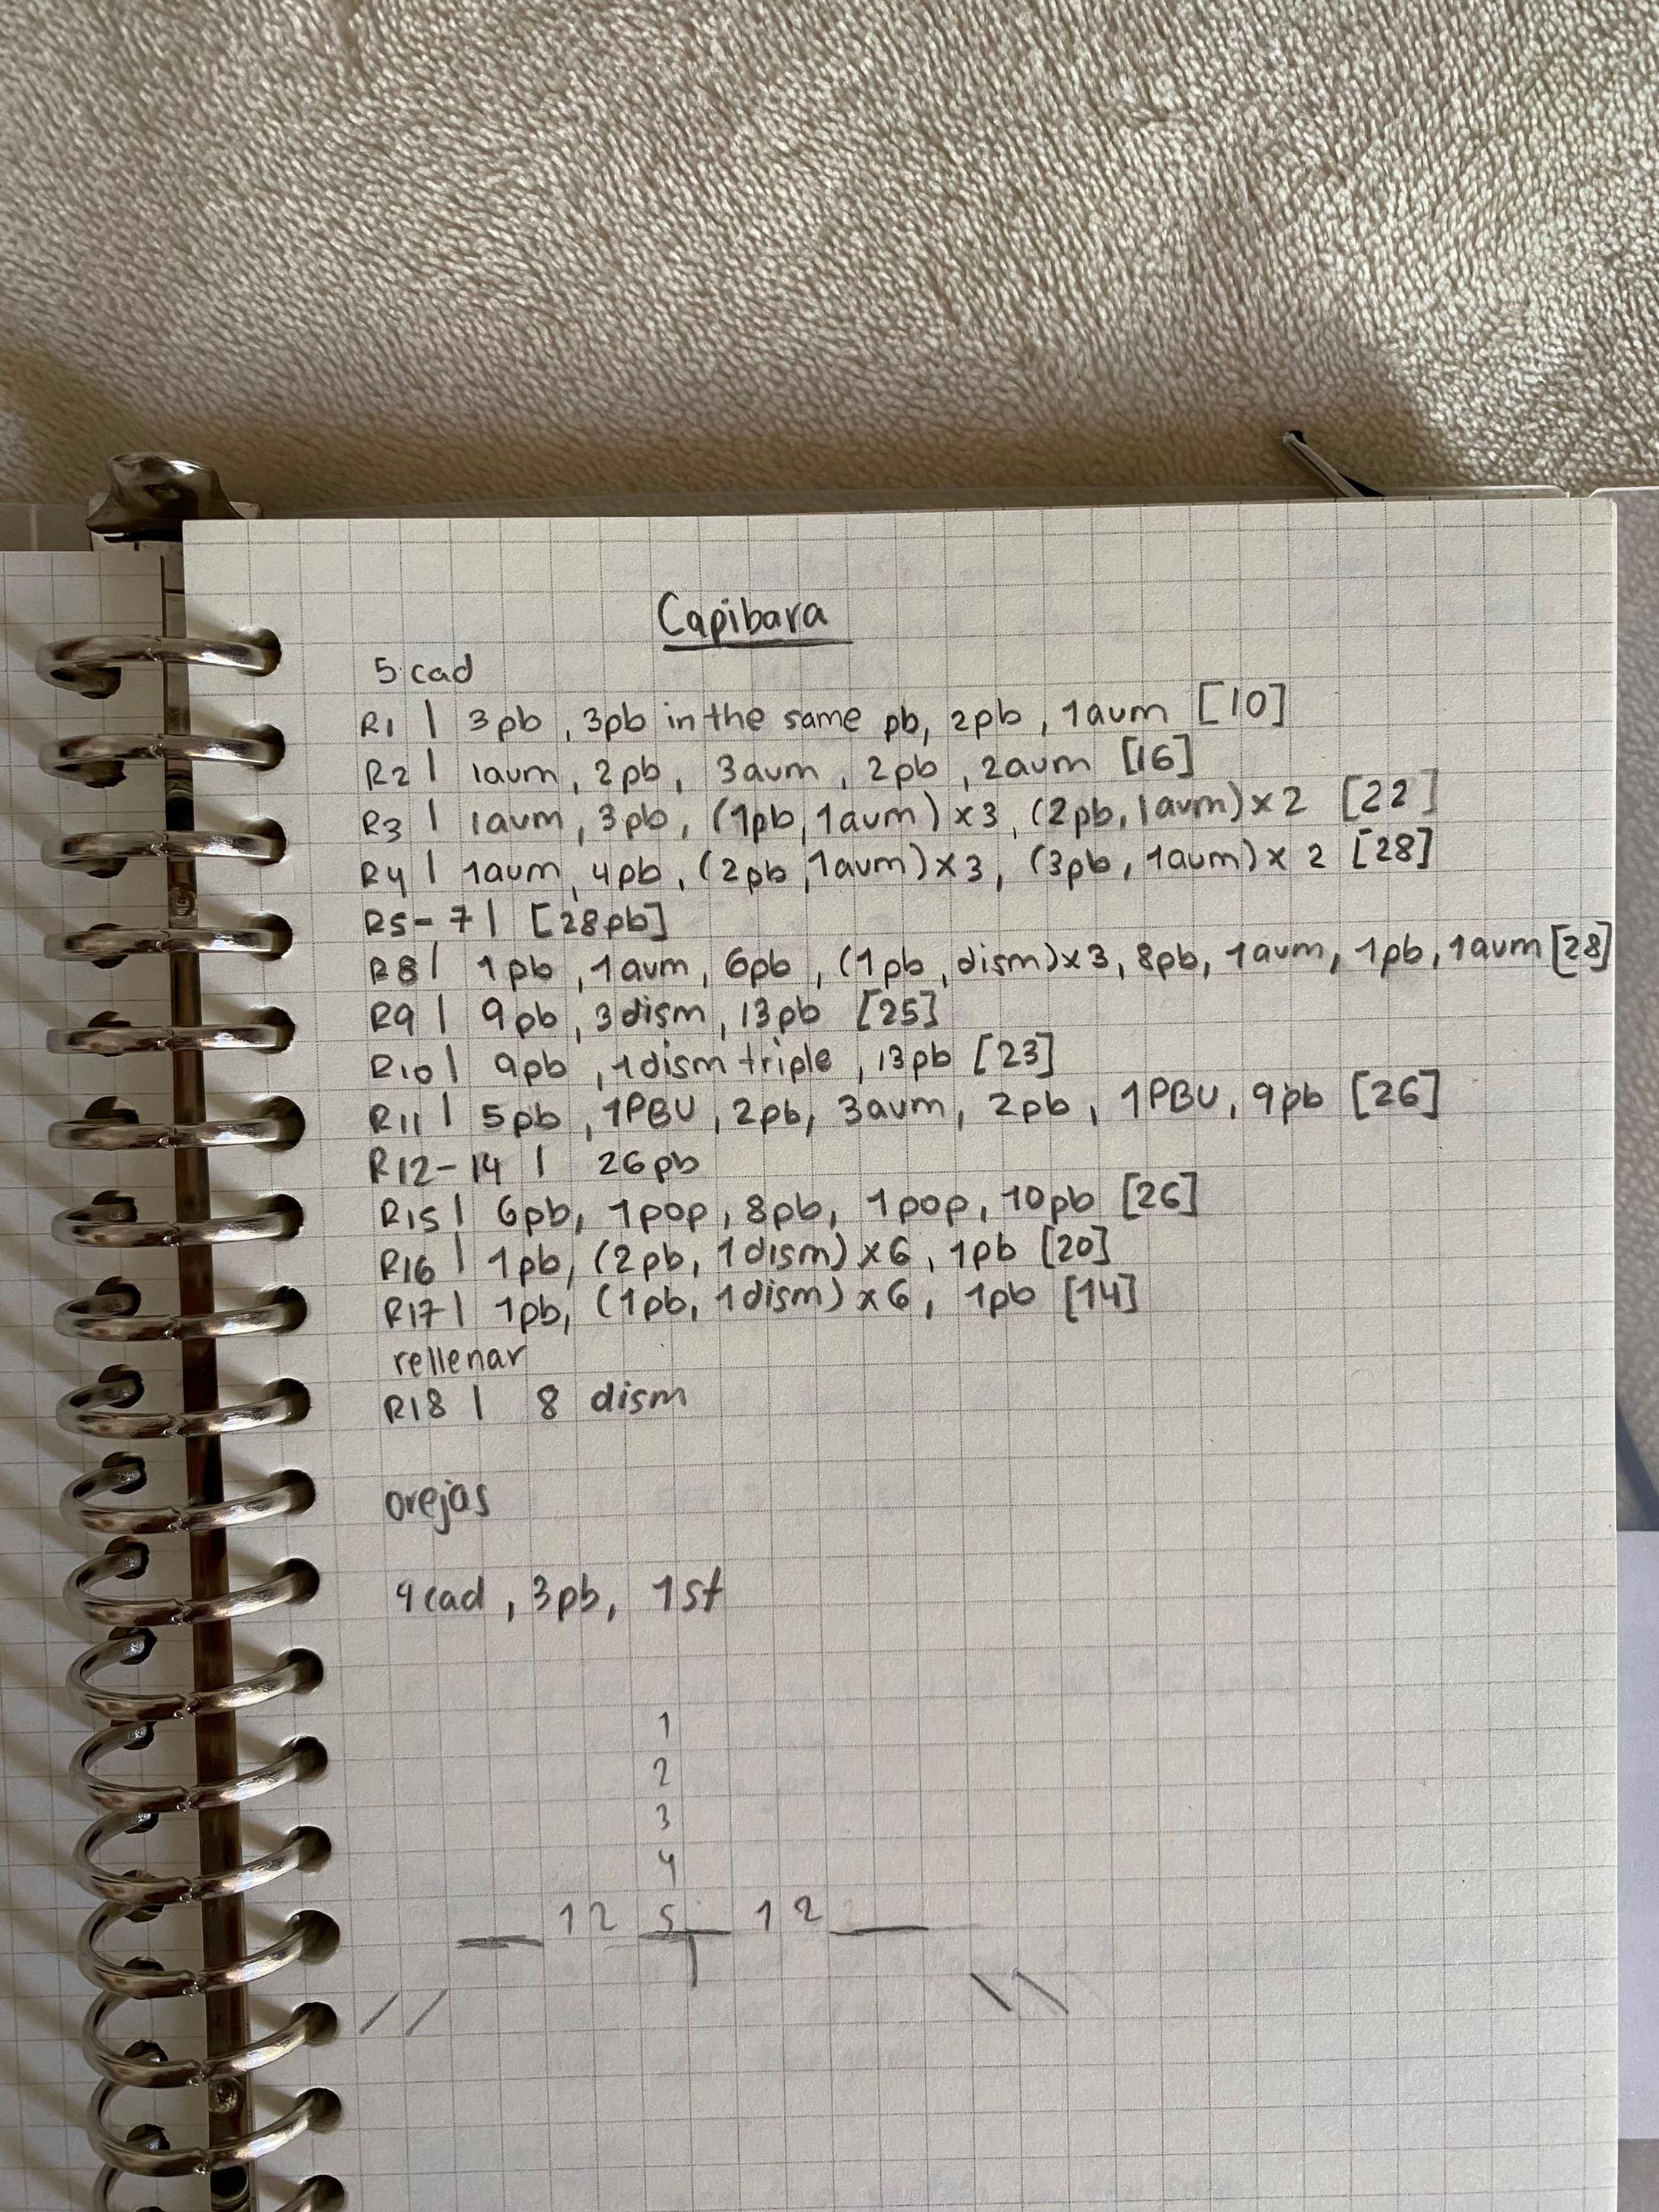 Capibara
5 cad
R1 | 3pb, 3pb in the same pb, 2pb, 1aum [10]
R2 | 1aum, 2pb, 3aum, 2pb, 2aum [16]
R3 | 1aum, 3pb, (1pb, 1aum) x3, (2pb, 1aum) x 2 [22]
R4 | 1aum, 4pb, (2pb, 1aum) x3, (3pb, 1aum) x 2 [28]
R5-7 | [28pb]
R8 | 1pb, 1aum, 6pb, (1pb, dism) x3, 8pb, 1aum, 1pb, 1aum [28]
R9 | 9pb, 3dism, 13pb [25]
R10 | 9pb, 1dism triple, 13pb [23]
R11 | 5pb, 1PBU, 2pb, 3aum, 2pb, 1PBU, 9pb [26]
R12-14 | 26pb
R15 | 6pb, 1pop, 8pb, 1pop, 10pb [26]
R16 | 1pb, (2pb, 1dism) x6, 1pb [20]
R17 | 1pb, (1pb, 1dism) x6, 1pb [14]
rellenar
R18 | 8 dism
orejas
4cad, 3pb, 1st
1
2
3
4
12 5 12